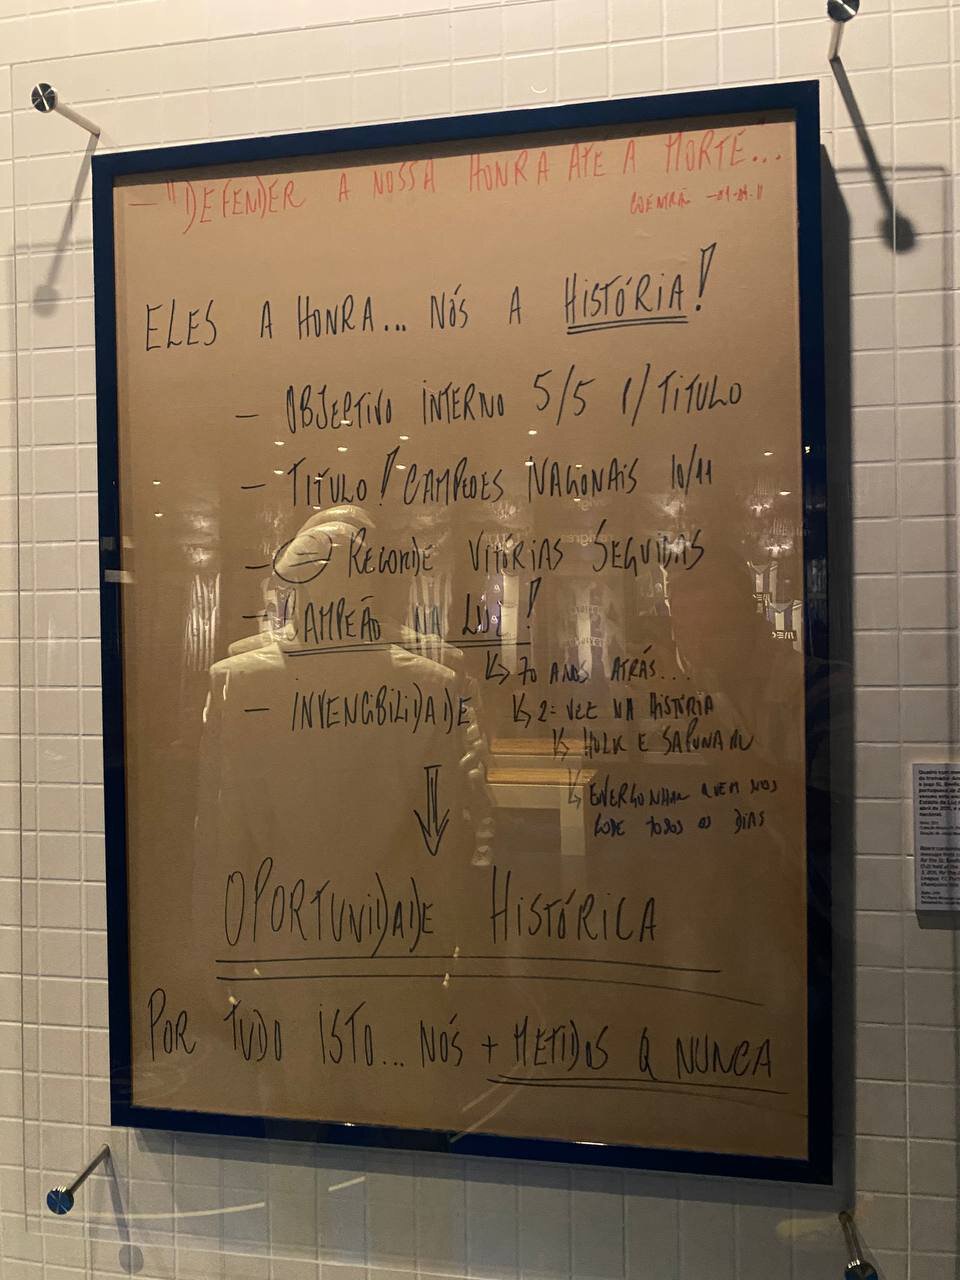 — "DEFENDER A NOSSA HONRA ATÉ À MORTE..."
COENTRÃO
ELES A HONRA... NÓS A HISTÓRIA!
— OBJECTIVO INTERNO 5/5 P/ TITULO
— TITULO! CAMPEÕES NACIONAIS 10/11
— = RECORDE VITÓRIAS SEGUIDAS
— CAMPEÃO NA LUZ!
↳ 70 ANOS ATRÁS...
— INVENCIBILIDADE ↳ 2ª VEZ NA HISTÓRIA
↳ HULK E SAPUNARU
↳ ENVERGONHAR QUEM NOS
FODE TODOS OS DIAS
OPORTUNIDADE HISTÓRICA
POR TUDO ISTO... NÓS + METIDOS Q NUNCA